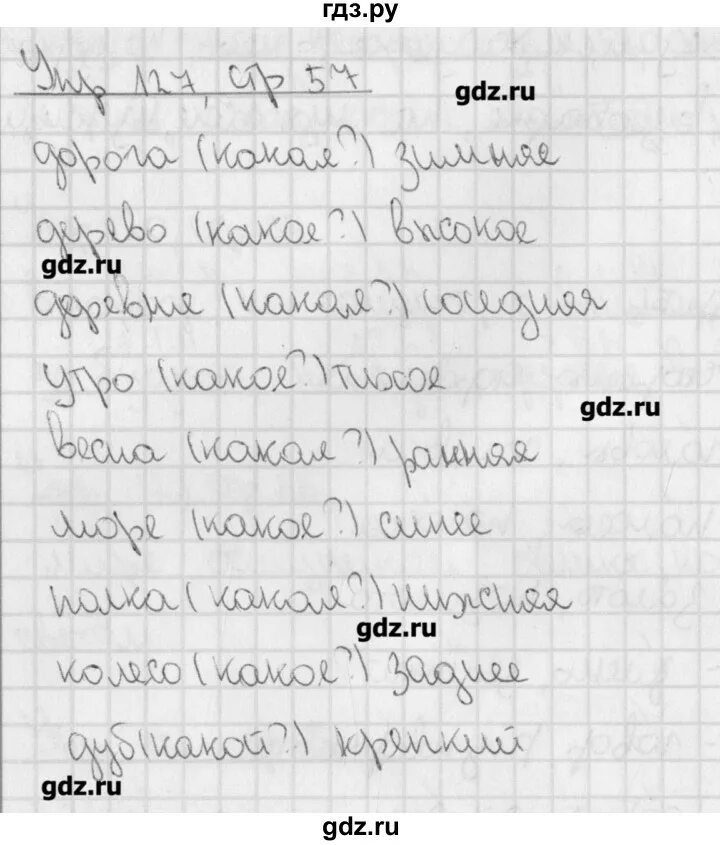 гдз.ру
Упр 127, стр 57
gdz.ru
дорога (какая?) зимняя
дерево (какое?) высокое
gdz.ru
деревня (какая?) соседняя
утро (какое?) тихое
gdz.ru
весна (какая?) ранняя
море (какое?) синее
полка (какая?) нижняя
gdz.ru
колесо (какое?) заднее
дуб (какой?) крепкий
gdz.ru
gdz.ru